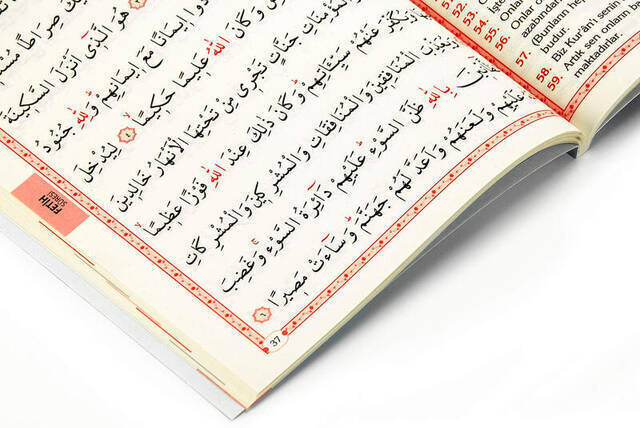 صِرَاطًا
هُوَ الَّذِٓي اَنْزَلَ السَّكِينَةَ
اِيمَانًا مَعَ اِيمَانِهِمْ وَلِلّٰهِ جُنُودُ
وَكَانَ اللّٰهُ عَلِيمًا حَكِيمًا ٤ لِيُدْخِلَ
جَنَّاتٍ تَجْرِي مِنْ تَحْتِهَا الْاَنْهَارُ خَالِدِينَ
وَيُكَفِّرَ عَنْهُمْ سَيِّـَٔاتِهِمْ وَكَانَ ذٰلِكَ عِنْدَ اللّٰهِ فَوْزًا عَظِيمًا
الْمُنَافِقِينَ وَالْمُنَافِقَاتِ وَالْمُشْرِكِينَ وَالْمُشْرِكَاتِ
بِاللّٰهِ ظَنَّ السَّوْءِ عَلَيْهِمْ دَٓائِرَةُ السَّوْءِ وَغَضِبَ
عَلَيْهِمْ وَلَعَنَهُمْ وَاَعَدَّ لَهُمْ جَهَنَّمَ وَسَٓاءَتْ مَصِيرًا ٦
FETİH
SÛRESİ
37
53.
54.
55. Onlar
56. azabından
57. (Bunların hep
budur.
58. Biz Kur'ân'ı senin
59. Artık sen onların
maktadırlar.